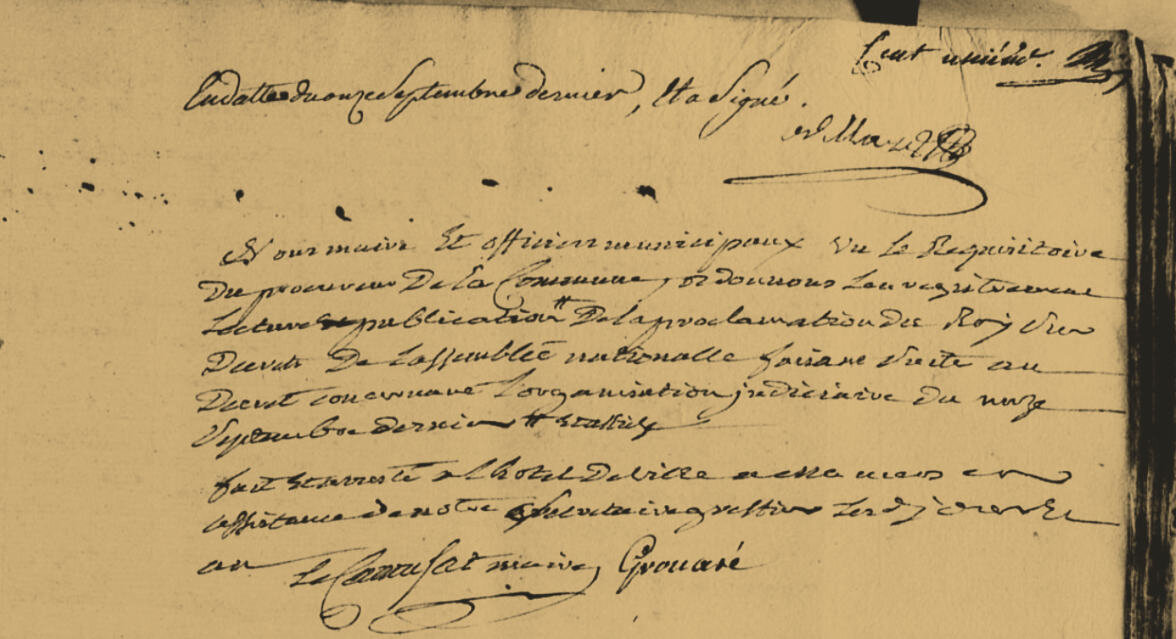 Cent unième.
En datte du onze Septembre dernier, Et a Signé.
Nous maire Et officiers municipaux vu Le Requisitoire
Du procureur De La Commune, ordonnons L'enregistrement
Lecture publication # De la proclamation du Roy d'un
Decret De L'assemblée nationalle faisant Suite au
Decret concernant L'organisation judiciaire du onze
Septembre dernier # Et affiche
fait Et arresté a L'hotel De ville en
assistance de notre Secretaire greffier Les dits jour Et
an Le Camusat maire Grouaré